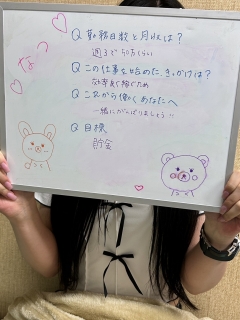 なつ
Q 勤務日数と月収は？
週3で50万くらい
Q この仕事を始めたきっかけは？
効率良く稼ぐため
Q これから働くあなたへ
一緒にがんばりましょう!!
Q 目標
貯金